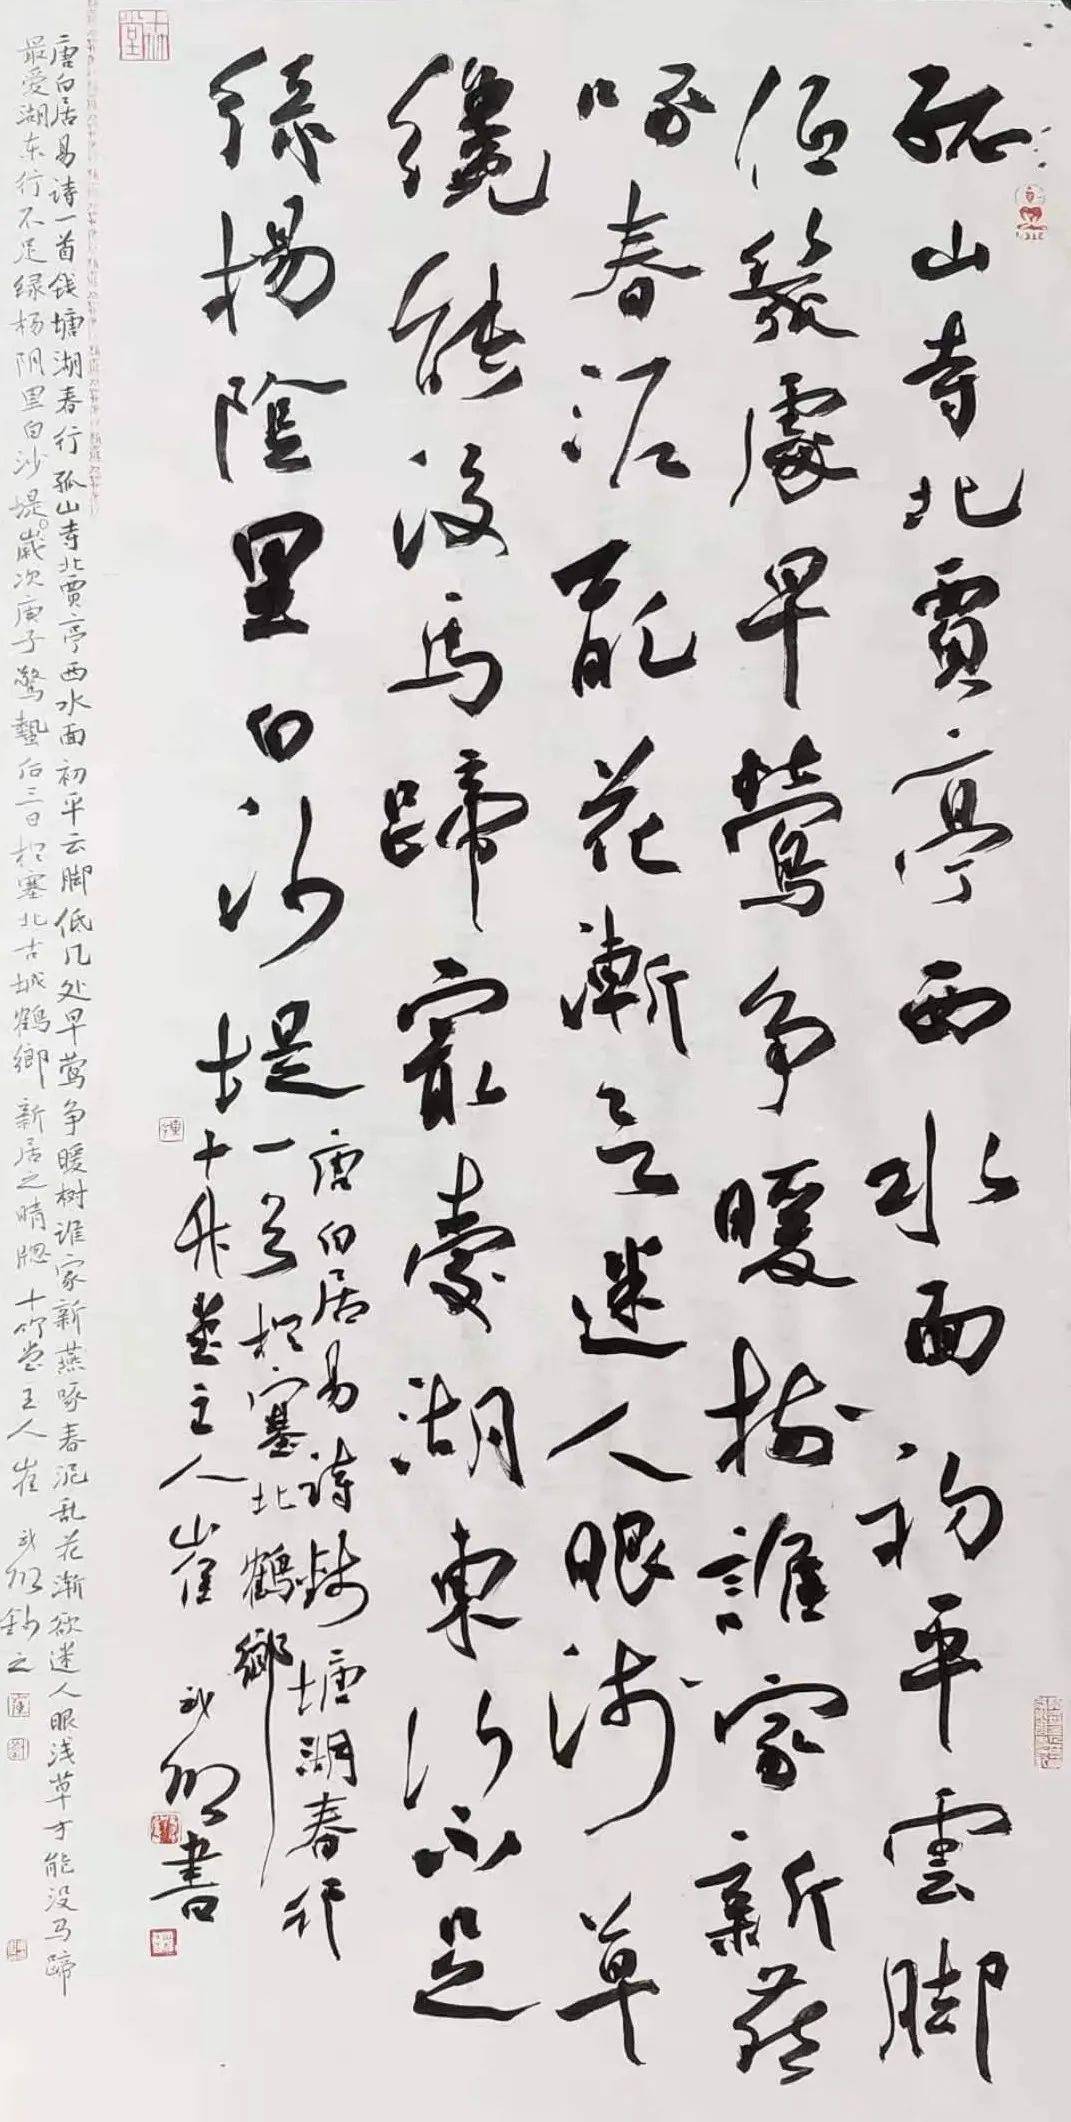 孤山寺北賈亭西水面初平雲脚
低幾處早鶯争暖樹誰家新燕
啄春泥亂花漸欲迷人眼淺草
纔能没馬蹄最愛湖東行不足
綠楊陰里白沙堤
唐白居易詩錢塘湖春行
一首於塞北鶴鄉
十竹堂主人崔
書
唐白居易诗一首钱塘湖春行孤山寺北贾亭西水面初平云脚低几处早莺争暖树谁家新燕啄春泥乱花渐欲迷人眼浅草才能没马蹄
最爱湖东行不足绿杨阴里白沙堤。歲次庚子驚蟄后三日於塞北古城鶴鄉新居之晴窗十竹堂主人崔